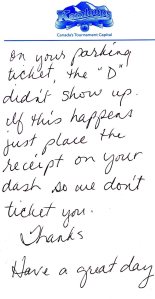 Kamloops
Canada's Tournament Capital
on your parking
ticket, the "D"
didn't show up.
if this happens
just place the
receipt on your
dash so we don't
ticket you.
Thanks
Have a great day